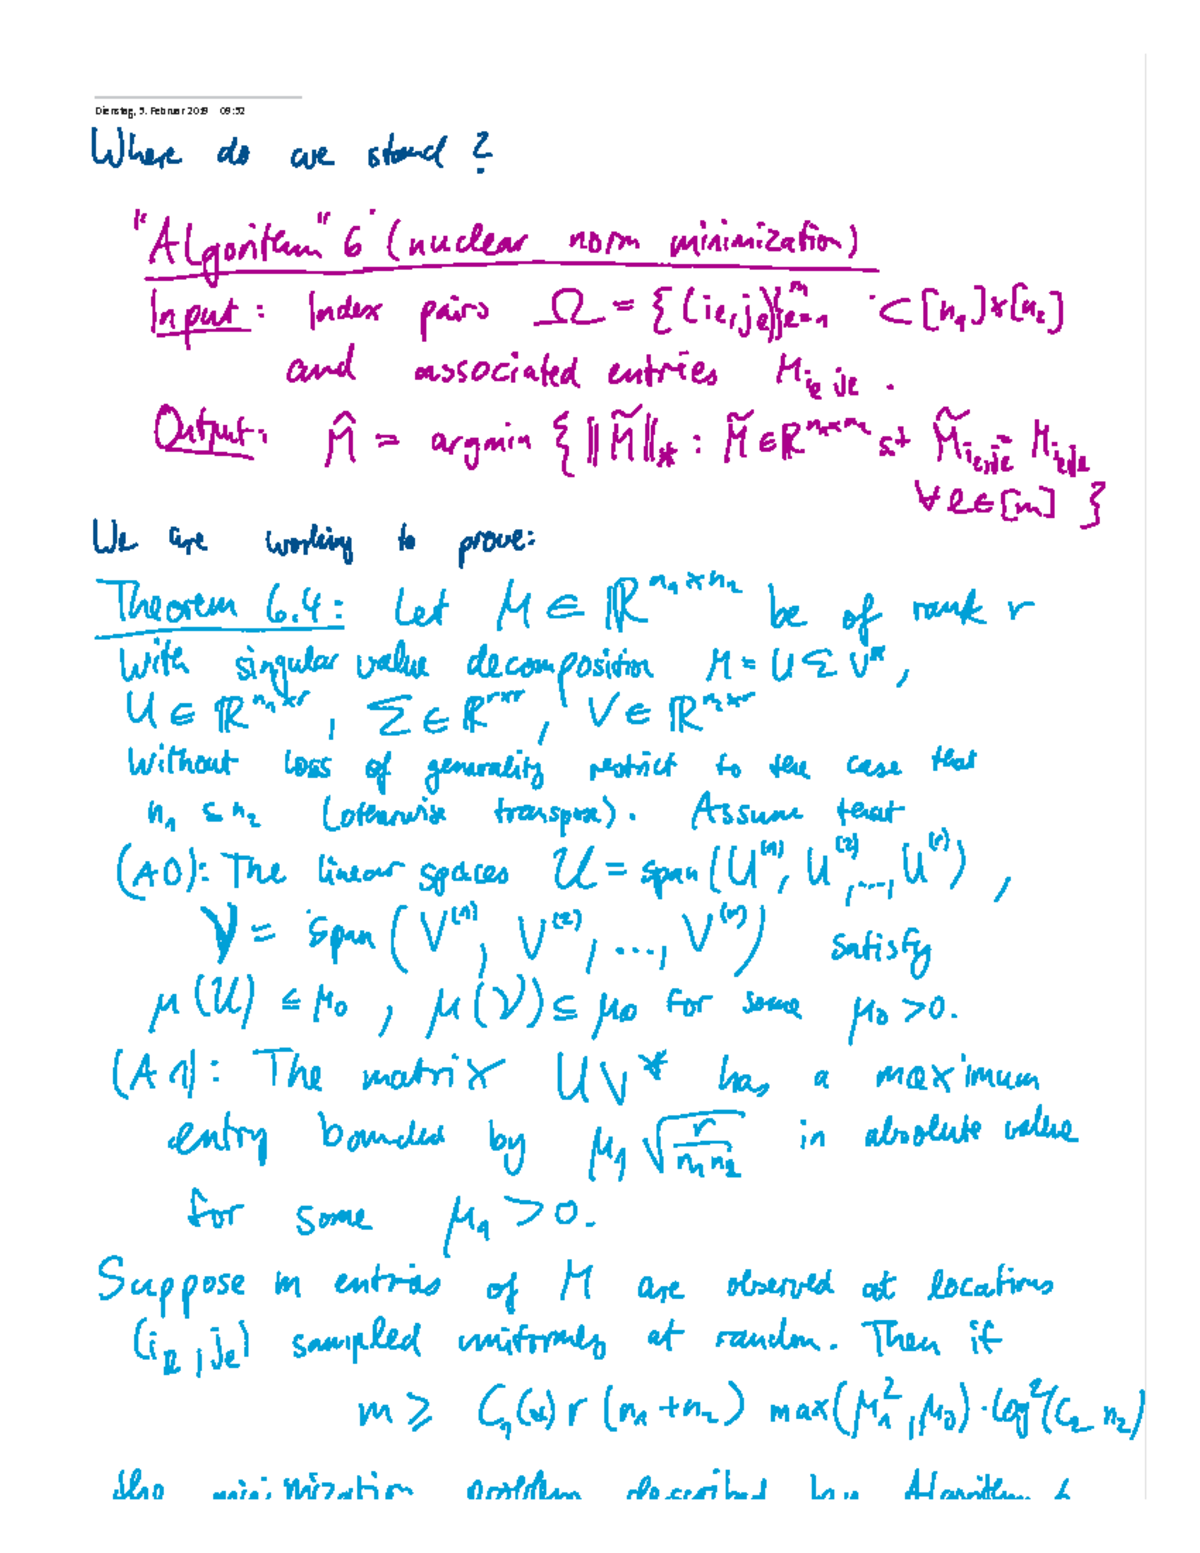 Dienstag, 5. Februar 2019 09:52
Where do we stand?
"Algorithm" 6 (nuclear norm minimization)
Input: Index pairs Ω = {(i_ℓ, j_ℓ)}_{ℓ=1}^m ⊂ [n_1]×[n_2]
and associated entries M_{i_ℓ j_ℓ}.
Output: M̂ = argmin {‖M̃‖_* : M̃ ∈ ℝ^{n_1×n_2} st M̃_{i_ℓ j_ℓ} = M_{i_ℓ j_ℓ}
∀ ℓ ∈ [m] }
We are working to prove:
Theorem 6.4: Let M ∈ ℝ^{n_1×n_2} be of rank r
with singular value decomposition M = U Σ V*,
U ∈ ℝ^{n_1×r}, Σ ∈ ℝ^{r×r}, V ∈ ℝ^{n_2×r}
Without loss of generality restrict to the case that
n_1 ≤ n_2 (otherwise transpose). Assume that
(A0): The linear spaces 𝒰 = span(U^{(1)}, U^{(2)}, ..., U^{(r)}),
𝒱 = span(V^{(1)}, V^{(2)}, ..., V^{(r)}) satisfy
μ(𝒰) ≤ μ_0, μ(𝒱) ≤ μ_0 for some μ_0 > 0.
(A1): The matrix UV* has a maximum
entry bounded by μ_1 √(r/(n_1 n_2)) in absolute value
for some μ_1 > 0.
Suppose m entries of M are observed at locations
(i_ℓ, j_ℓ) sampled uniformly at random. Then if
m ≥ C_1(α) r (n_1 + n_2) max(μ_1^2, μ_0) · log^2(C_2 n_2)
the minimization problem described by Algorithm 6